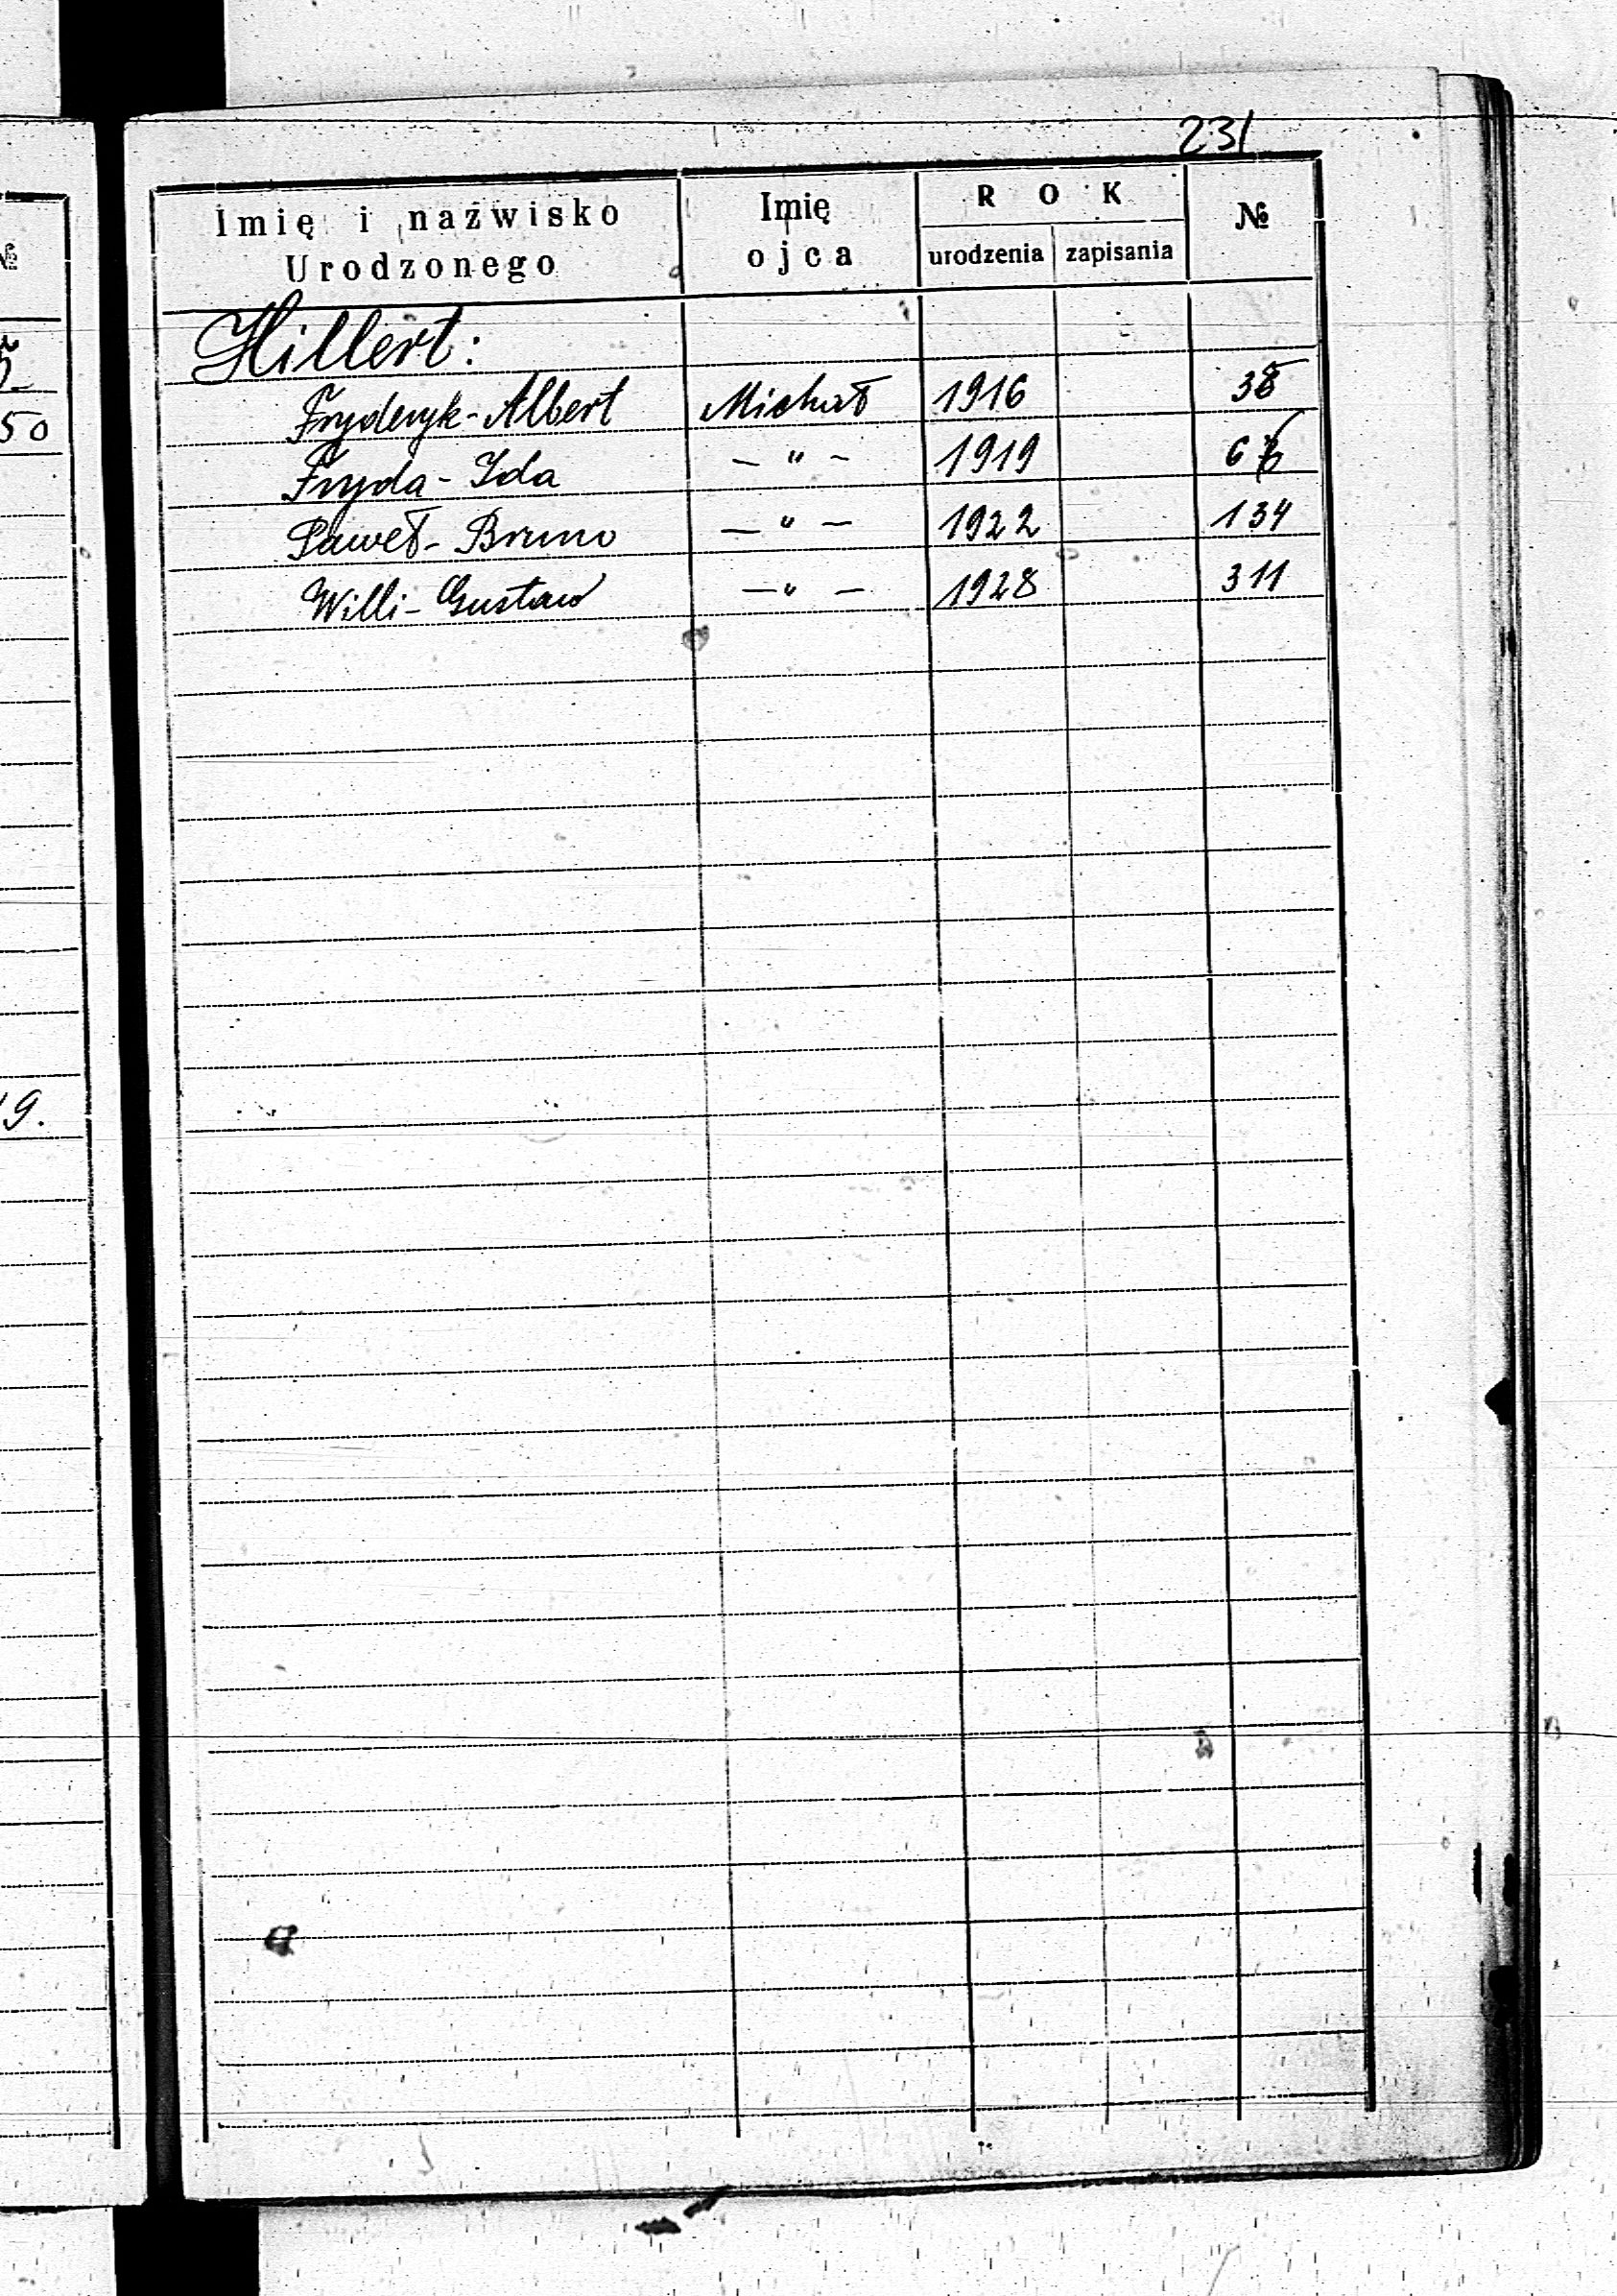 231
Imię i nazwisko Urodzonego
Imię ojca
ROK
urodzenia zapisania
№
Hillert:
Fryderyk-Albert Michał 1916
Fryda-Ida —"— 1919
Paweł-Bruno —"— 1922 134
Willi-Gustaw —"— 1928 311
№
50
9.